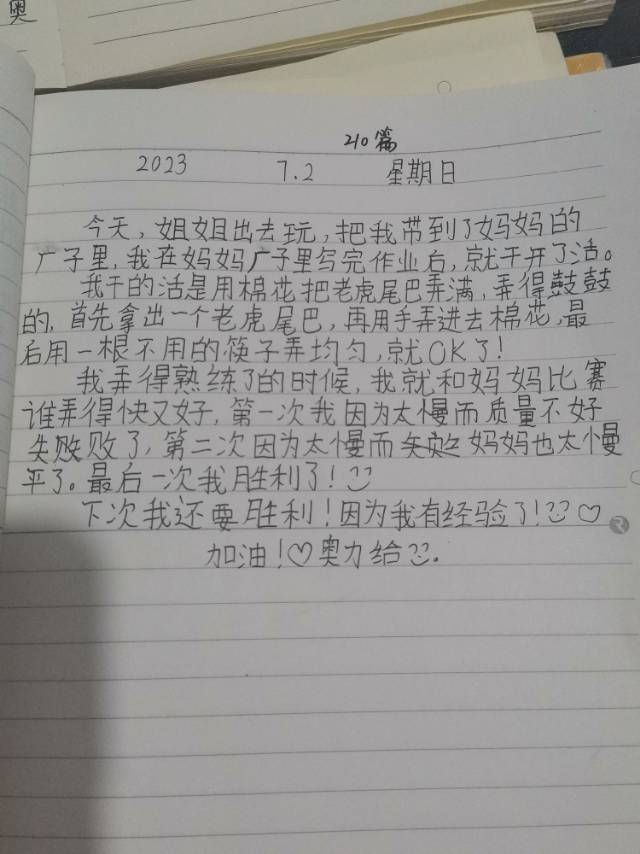 奥
210篇
2023 7.2 星期日
今天，姐姐出去玩，把我带到了妈妈的
广子里，我在妈妈广子里写完作业后，就干开了活。
我干的活是用棉花把老虎尾巴弄满，弄得鼓鼓
的，首先拿出一个老虎尾巴，再用手弄进去棉花，最
后用一根不用的筷子弄均匀，就OK了！
我弄得熟练了的时候，我就和妈妈比赛
谁弄得快又好，第一次我因为太慢而质量不好
失败败了，第二次因为太慢而 妈妈也太慢
平了。最后一次我胜利了！
下次我还要胜利！因为我有经验了！♡
加油！♡奥力给。